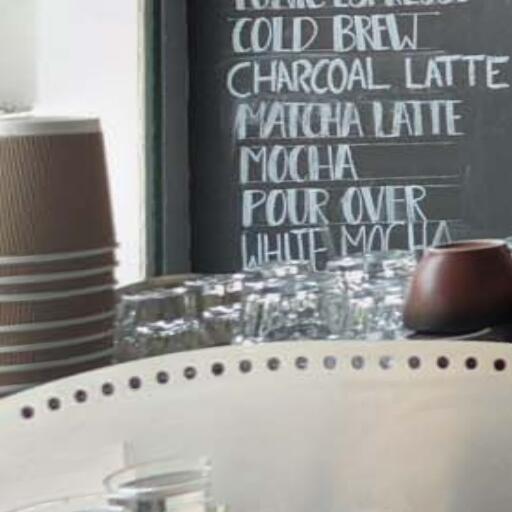 ESPRESSO
COLD BREW
CHARCOAL LATTE
MATCHA LATTE
MOCHA
POUR OVER
WHITE MOCHA